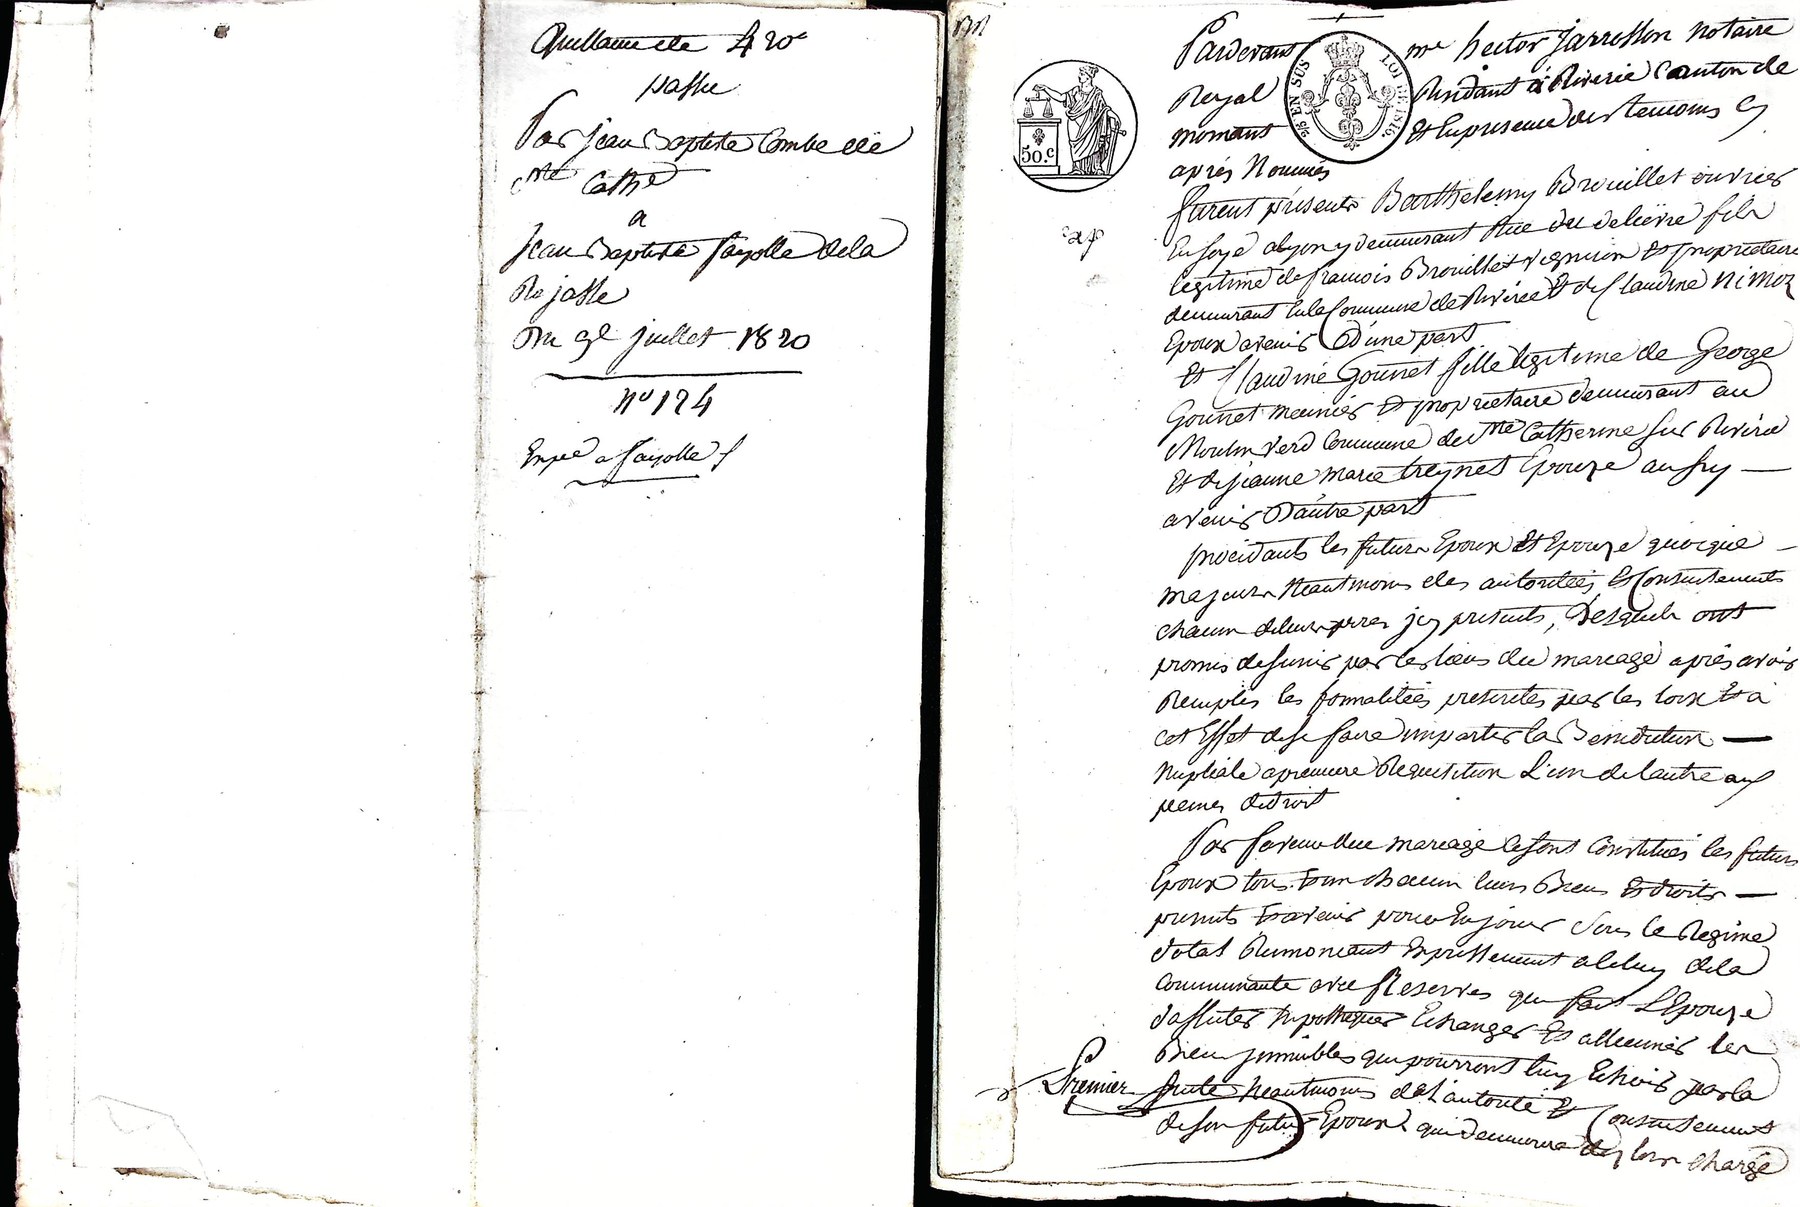 Quittance de 420f
passée
Par Jean Baptiste Combe de
Ste Cathe
a
Jean Baptiste fayolle dela
Rajasse
Du 9e juillet 1820
no 124
Expé a fayolle
Pardevant me hector Jarrosson Notaire
Royal Residant à Riverie Canton de
mornant Et En presence des temoins cy
après Nommés
EN SUS
LOI DE 1816.
50.c
furent présents Barthelemy Brouillet ouvrier
En soye a lyon y demeurant Rue du fils
legitime de françois Brouillet vigneron Et propriétaire
demeurant En la Commune de Riverie Et de Claudine Nimoz
Epoux avenir D'une part
Et Claudine Gounet fille legitime de George
Gounet meunier Et proprietaire demeurant au
Moulin Verd Commune de Ste Catherine sur Riverie
Et de jeanne marie Epouze aussy
avenir D'autre part
procédants les futurs Epoux Et Epouze quoique
majeurs Neantmoins des autoritées Et Consentements
chacun de leurs peres jcy presents, Desquels ont
promis de s'unir par les liens du mariage après avoir
Remplis les formalitées prescrites par les loix Et à
cet Effet de se faire impartir la Benediction
Nuptiale a premiere Requisition L'un de l'autre aux
peines de Droit
Par faveur du mariage se sont Constitués les futurs
Epoux tous Et un chacun leurs Biens Et droits
presents Et avenir pour En jouir sous le Regime
dotal Renonceant Expressement a celuy dela
communauté avec Reserves que fait L'Epouze
d'affecter hypothequer Echanger Et alliener les
Biens jmmeubles qui pourront luy Echoir par la
Premier suite Neantmoins de L'autorité Et Consentement
de son futur Epoux qui demeurera des lors chargé